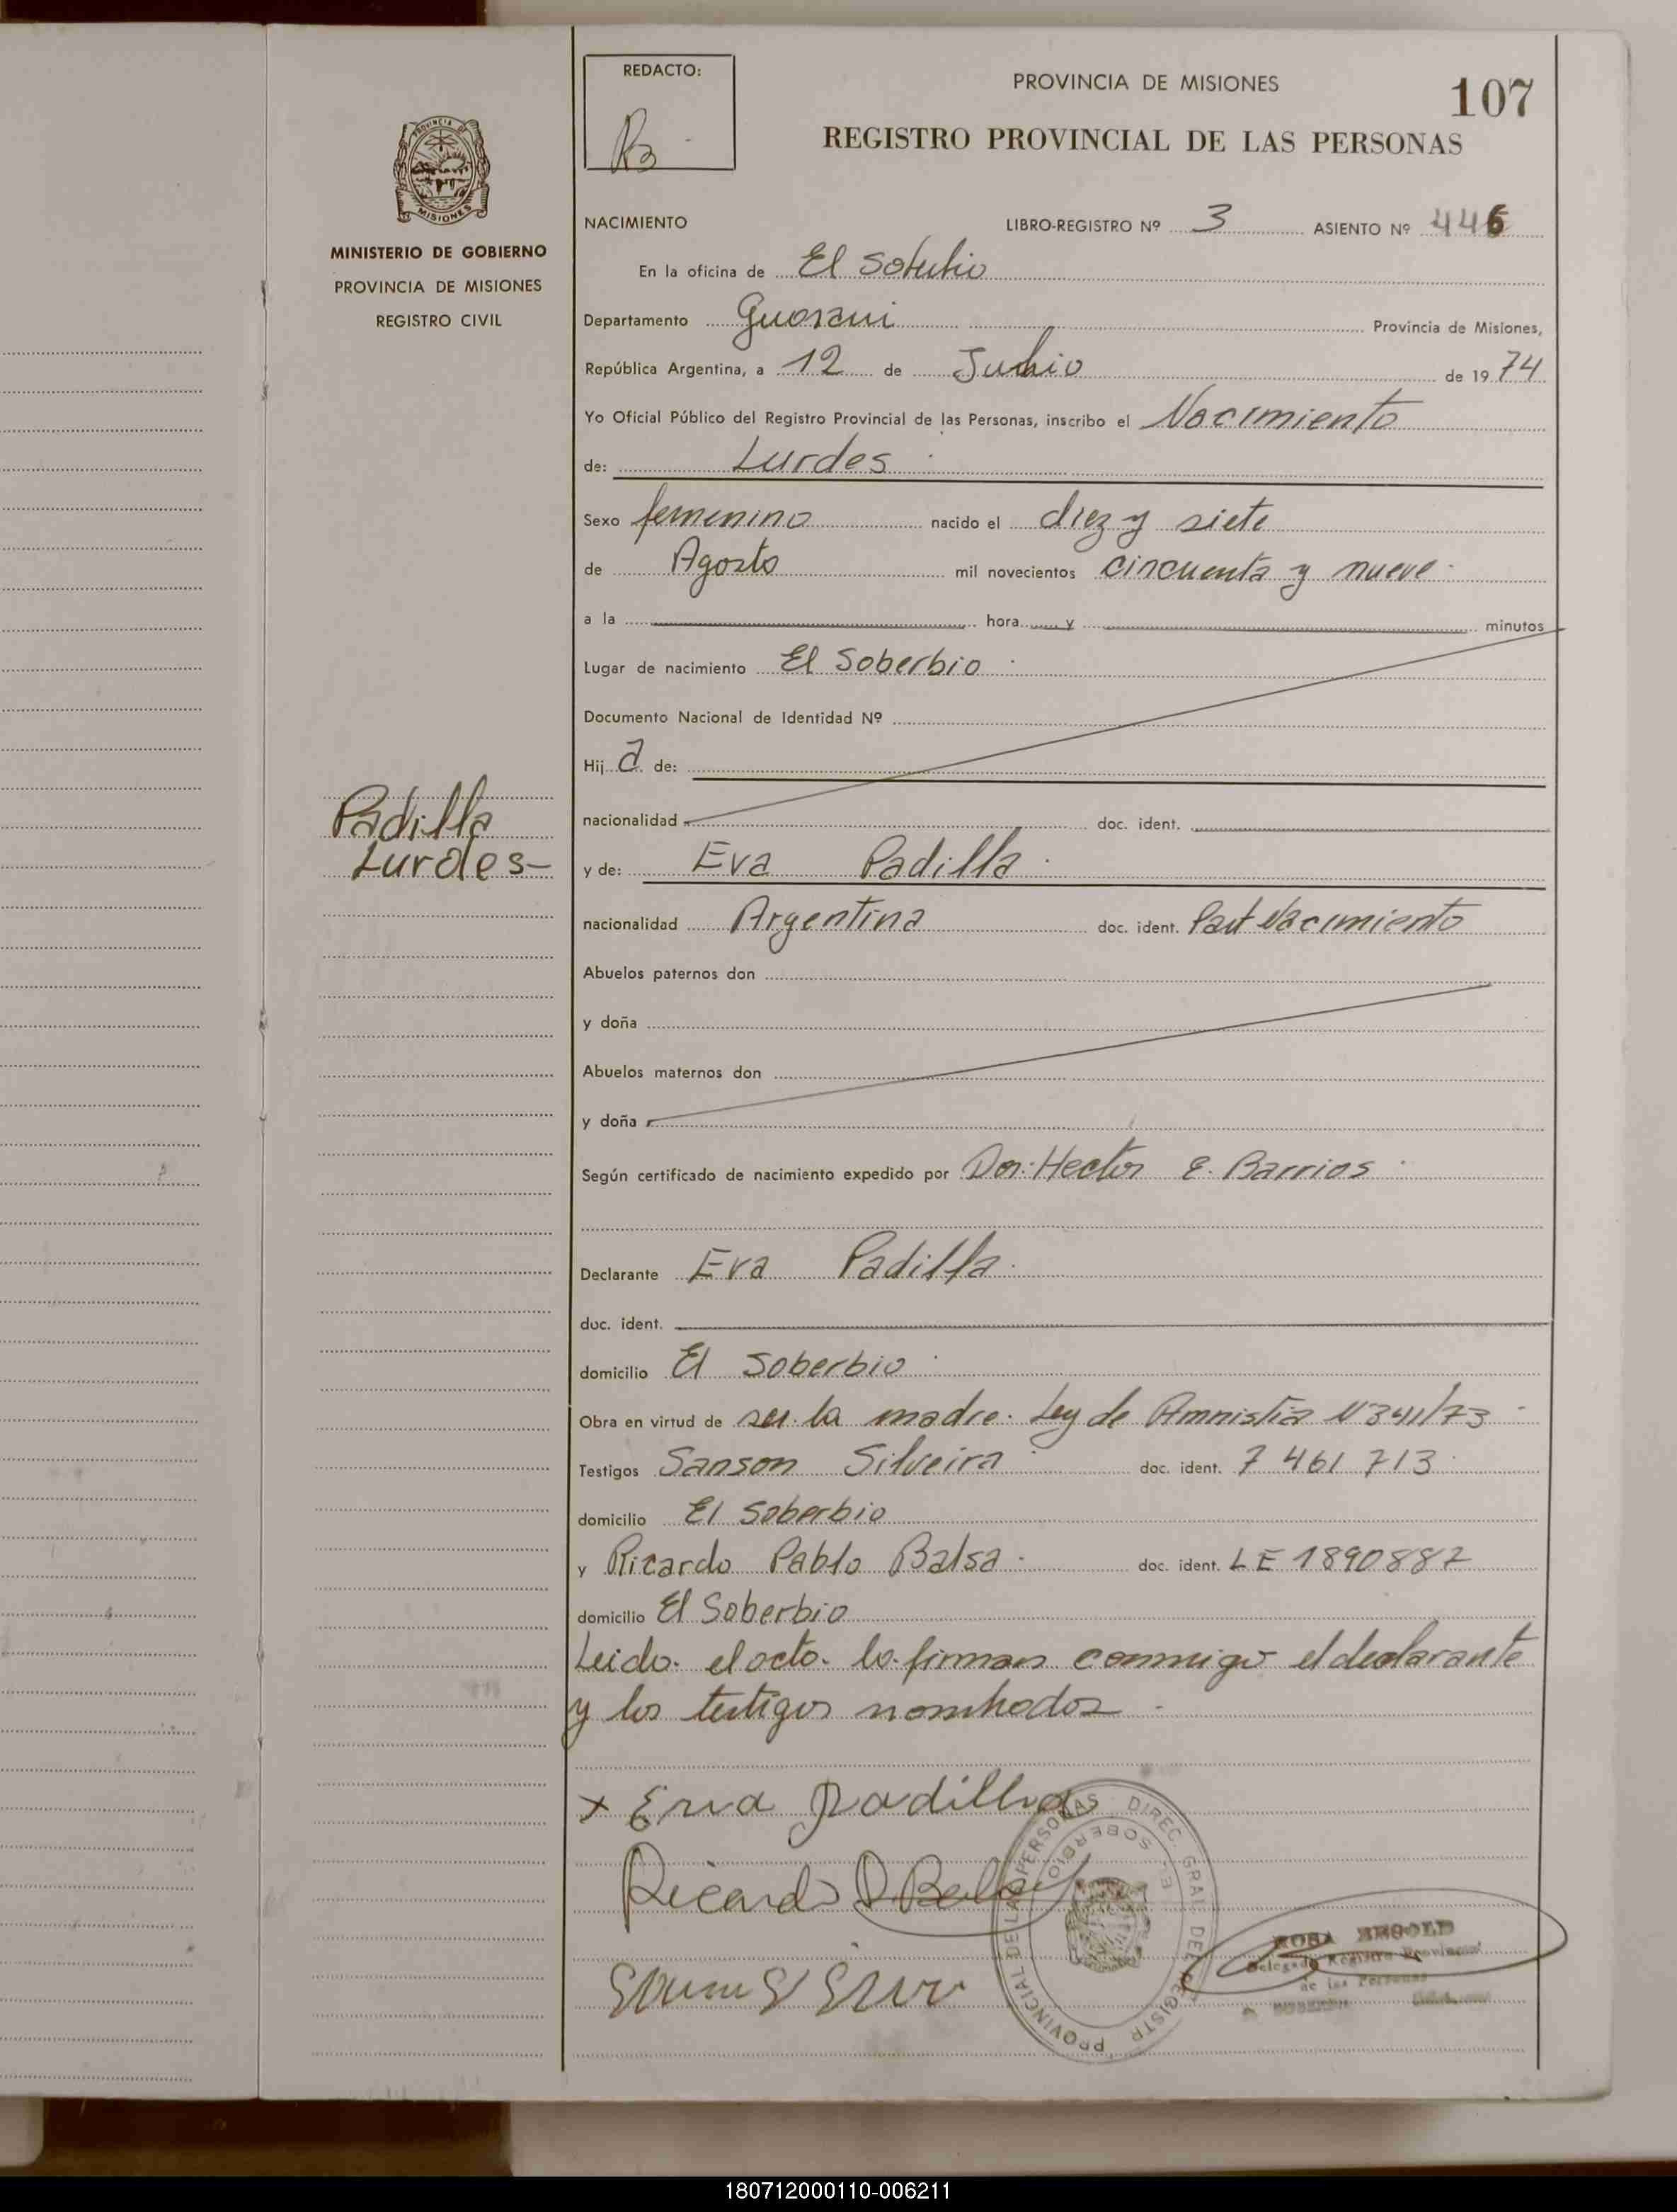 REDACTO:
PROVINCIA DE MISIONES
107
REGISTRO PROVINCIAL DE LAS PERSONAS
PROVINCIA DE
MISIONES
MINISTERIO DE GOBIERNO
PROVINCIA DE MISIONES
REGISTRO CIVIL
NACIMIENTO LIBRO-REGISTRO Nº 3 ASIENTO Nº 446
En la oficina de El Soberbio
Departamento Guarani Provincia de Misiones,
República Argentina, a 12 de Junio de 1974
Yo Oficial Público del Registro Provincial de las Personas, inscribo el Nacimiento
de: Lurdes
Sexo femenino nacido el diez y siete
de Agosto mil novecientos cincuenta y nueve
a la hora y minutos
Lugar de nacimiento El Soberbio
Documento Nacional de Identidad Nº
Hij a de:
nacionalidad doc. ident.
Padilla
Lurdes-
y de: Eva Padilla
nacionalidad Argentina doc. ident. Part Nacimiento
Abuelos paternos don
y doña
Abuelos maternos don
y doña
Según certificado de nacimiento expedido por Dor: Hector E. Barrios
Declarante Eva Padilla
doc. ident.
domicilio El Soberbio
Obra en virtud de ser la madre. Ley de Amnistia N 3411/73
Testigos Sanson Silveira doc. ident. 7 461 713
domicilio El Soberbio
y Ricardo Pablo Balsa doc. ident. LE 1890887
domicilio El Soberbio
Leido el acto lo firman conmigo el declarante
y los testigos nombrados
x Eva Padilla
Ricardo P. Balsa
PROVINCIAL DE LAS PERSONAS DIREC. GRAL. DEL REGISTR
EL SOBERBIO
ROSA
Delegado Registro Provincial
de las Personas
180712000110-006211